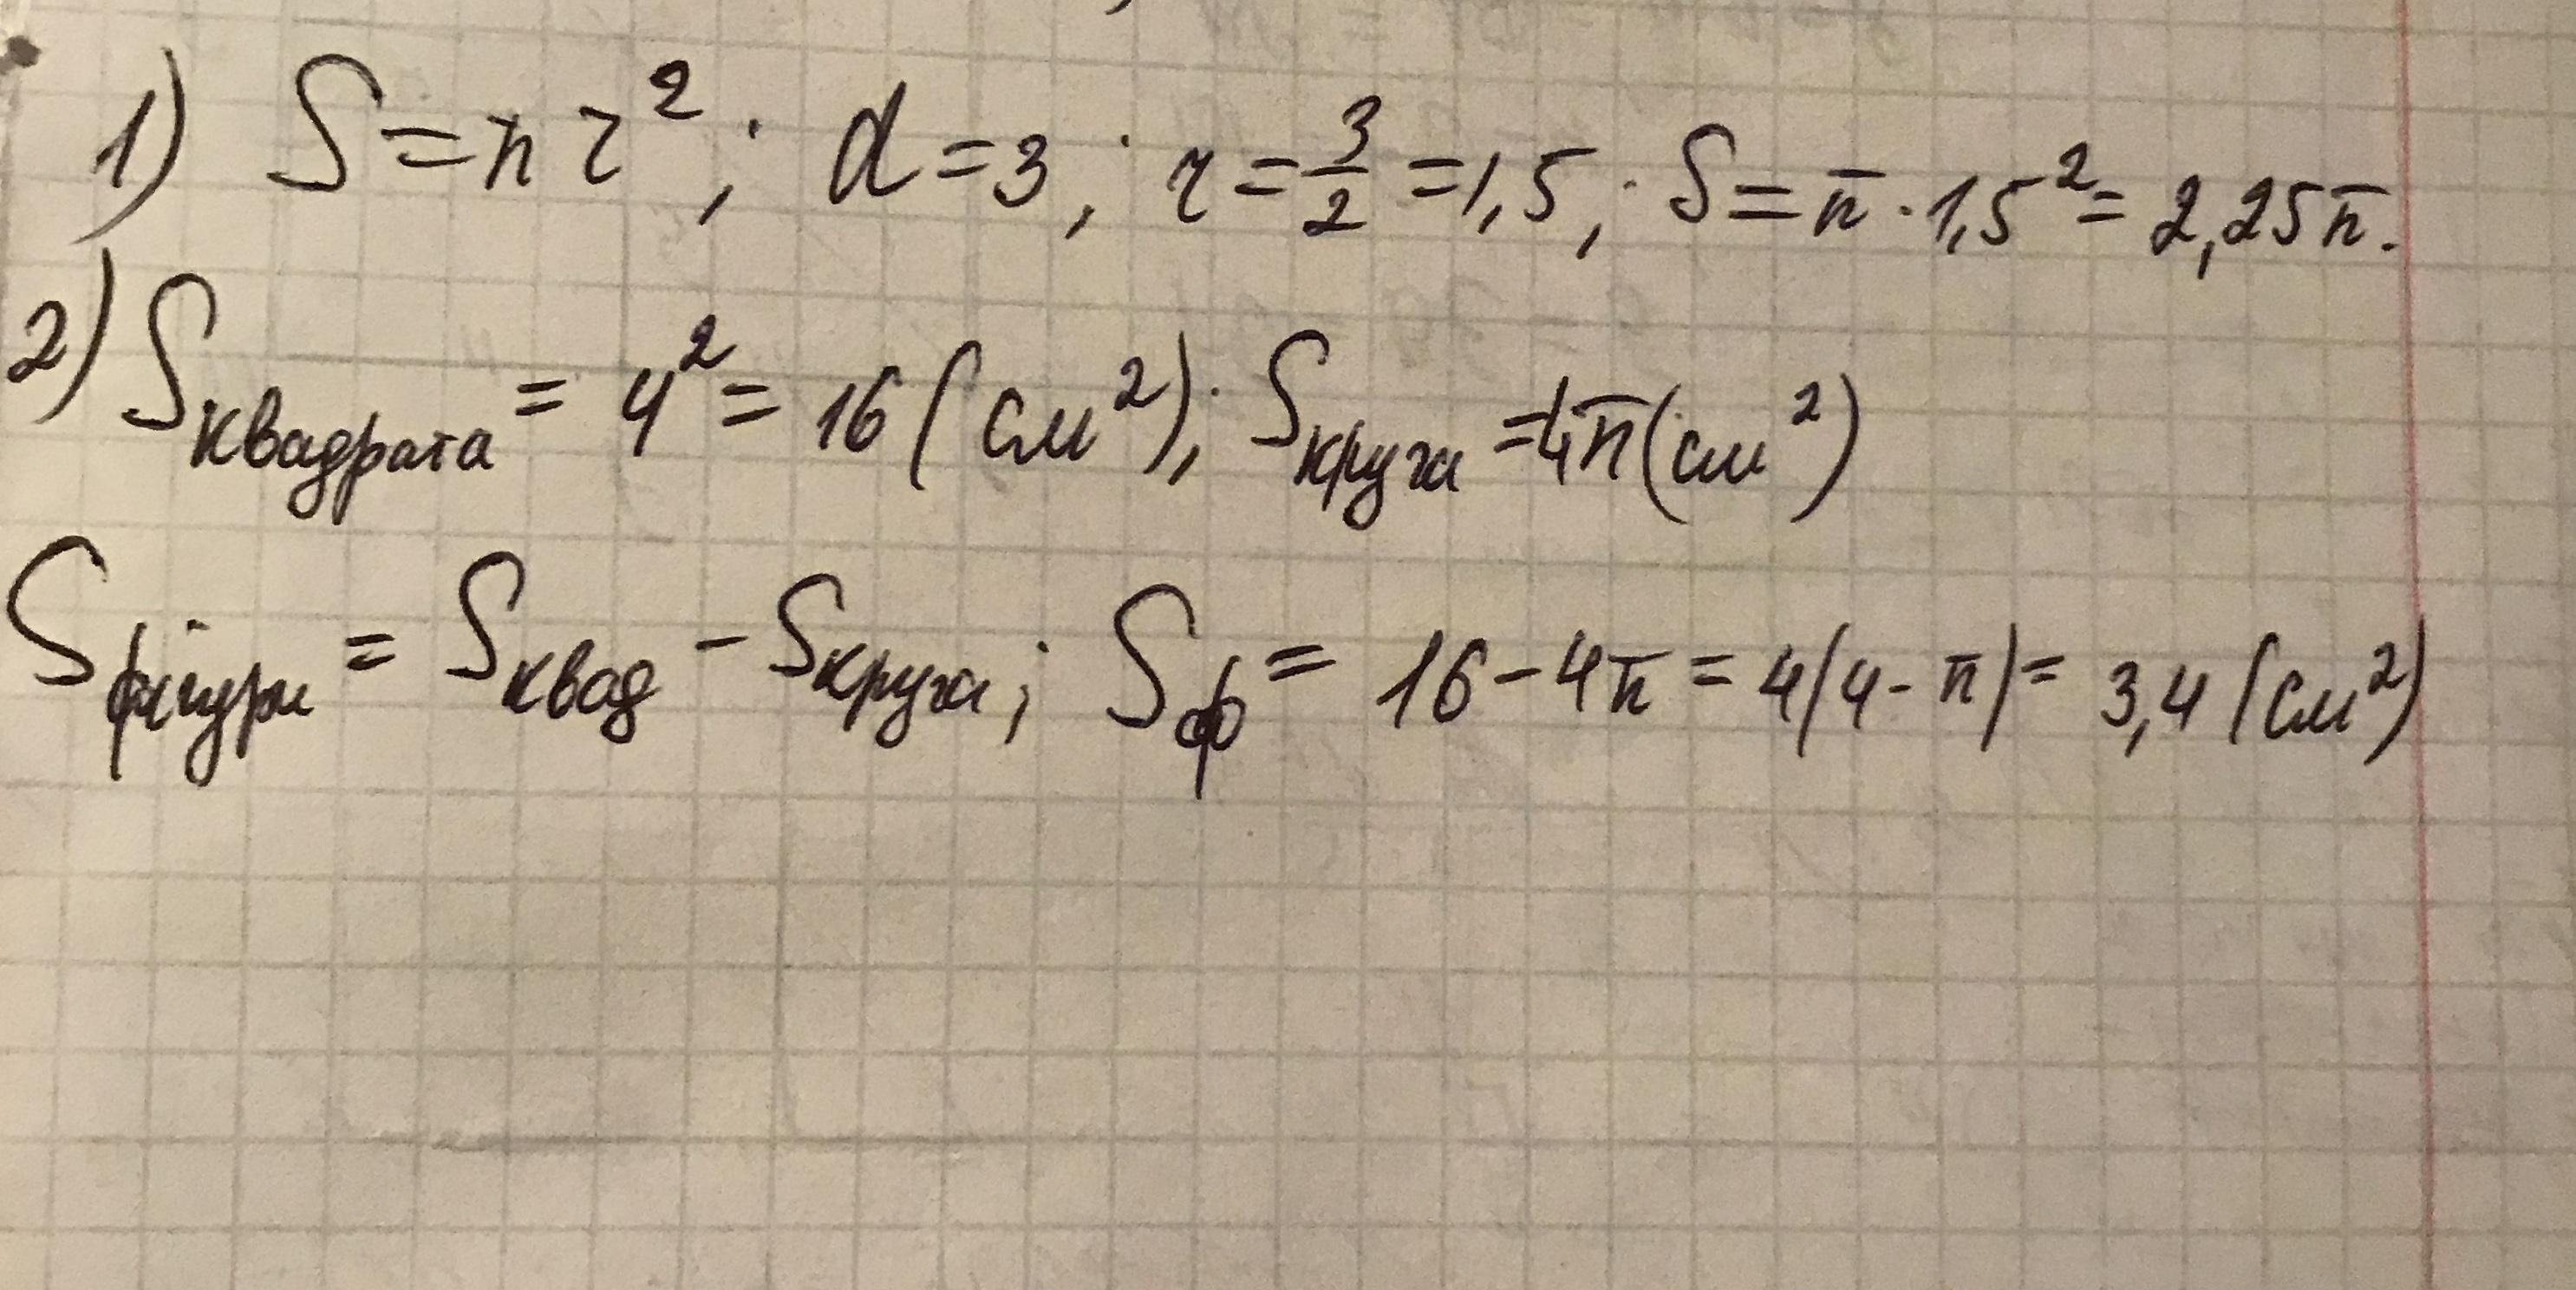 1) S = π r²; d = 3; r = 3/2 = 1,5; S = π · 1,5² = 2,25π.
2) Sквадрата = 4² = 16 (см²); Sкруга = 4π (см²)
Sфігури = Sквад − Sкруга; Sф = 16 − 4π = 4(4 - π) = 3,4 (см²)